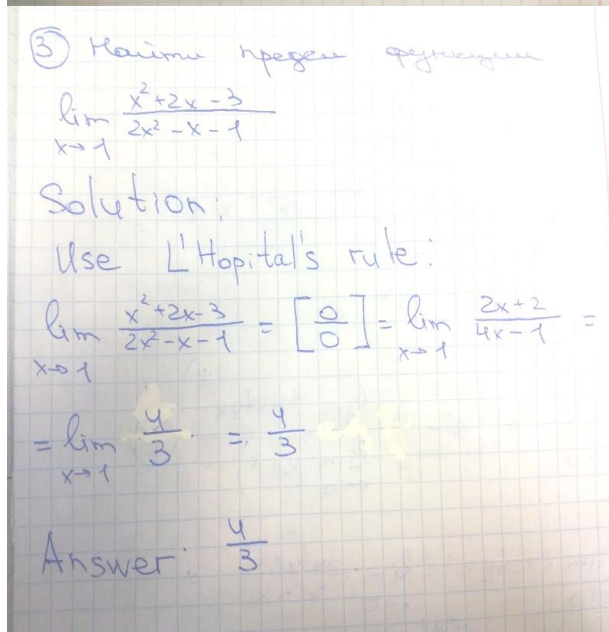 ③ Найти предел функции
lim x→1 (x²+2x-3)/(2x²-x-1)
Solution:
Use L'Hopital's rule:
lim x→1 (x²+2x-3)/(2x²-x-1) = [0/0] = lim x→1 (2x+2)/(4x-1) =
= lim x→1 4/3 = 4/3
Answer: 4/3